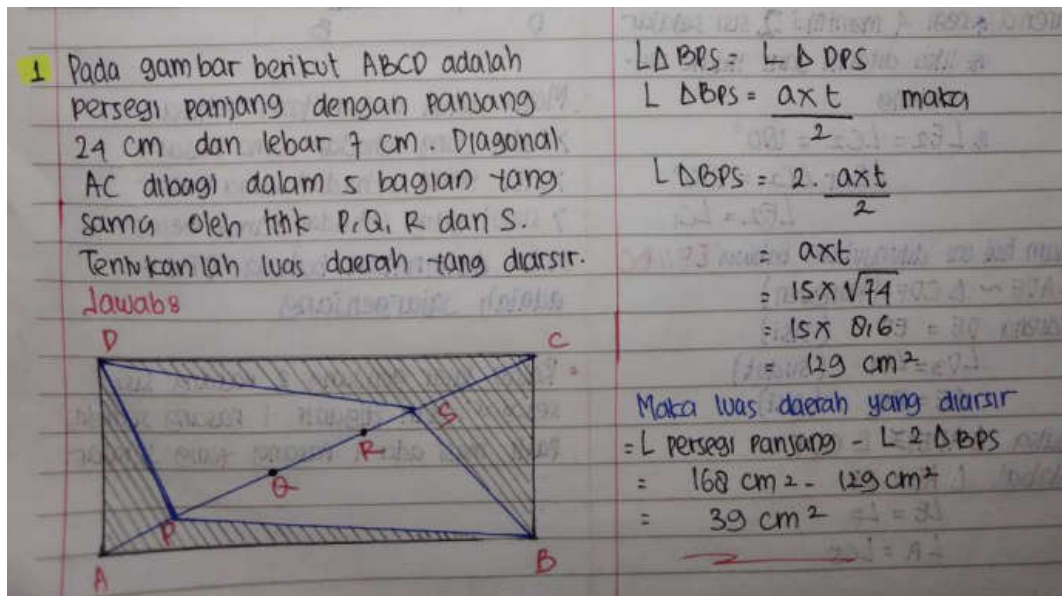 1 Pada gambar berikut ABCD adalah
persegi panjang dengan pansang
24 cm dan lebar 7 cm. Diagonal
AC dibagi dalam 5 bagian yang
sama oleh titik P, Q, R dan S.
Tentukanlah luas daerah yang diarsir.
Jawab:
D C
S
R
Q
P
A B
L Δ BPS = L Δ DPS
L ΔBPS = axt maka
2
L ΔBPS = 2. axt
2
= axt
= 15 x √74
= 15 x 8,6
= 129 cm²
Maka luas daerah yang diarsir
= L persegi pansang - L 2 Δ BPS
= 168 cm² - 129 cm²
= 39 cm²